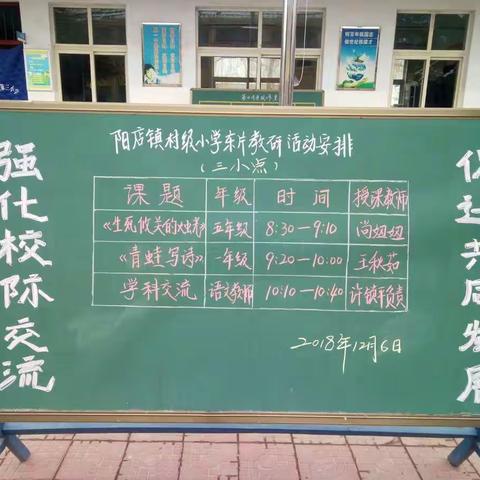 阳店镇村级小学东片教研活动安排
(三小点)
课题 年级 时间 授课教师
《生死攸关的烛光》 五年级 8:30—9:10 尚妞妞
《青蛙写诗》 一年级 9:20—10:00 王秋茹
学科交流 语文教师 10:10—10:40 许镇平负责
2018年12月6日
强化校际交流
促进共同发展